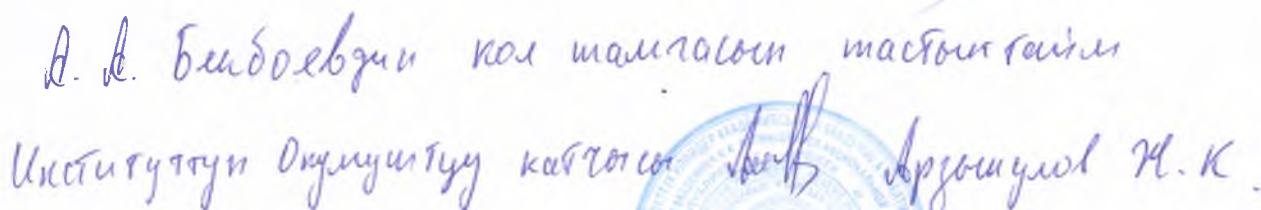 А. А. Бекбоевдин кол тамгасын тастыктайм
Институттун Окумуштуу катчысы Арзыкулов Ж. К.